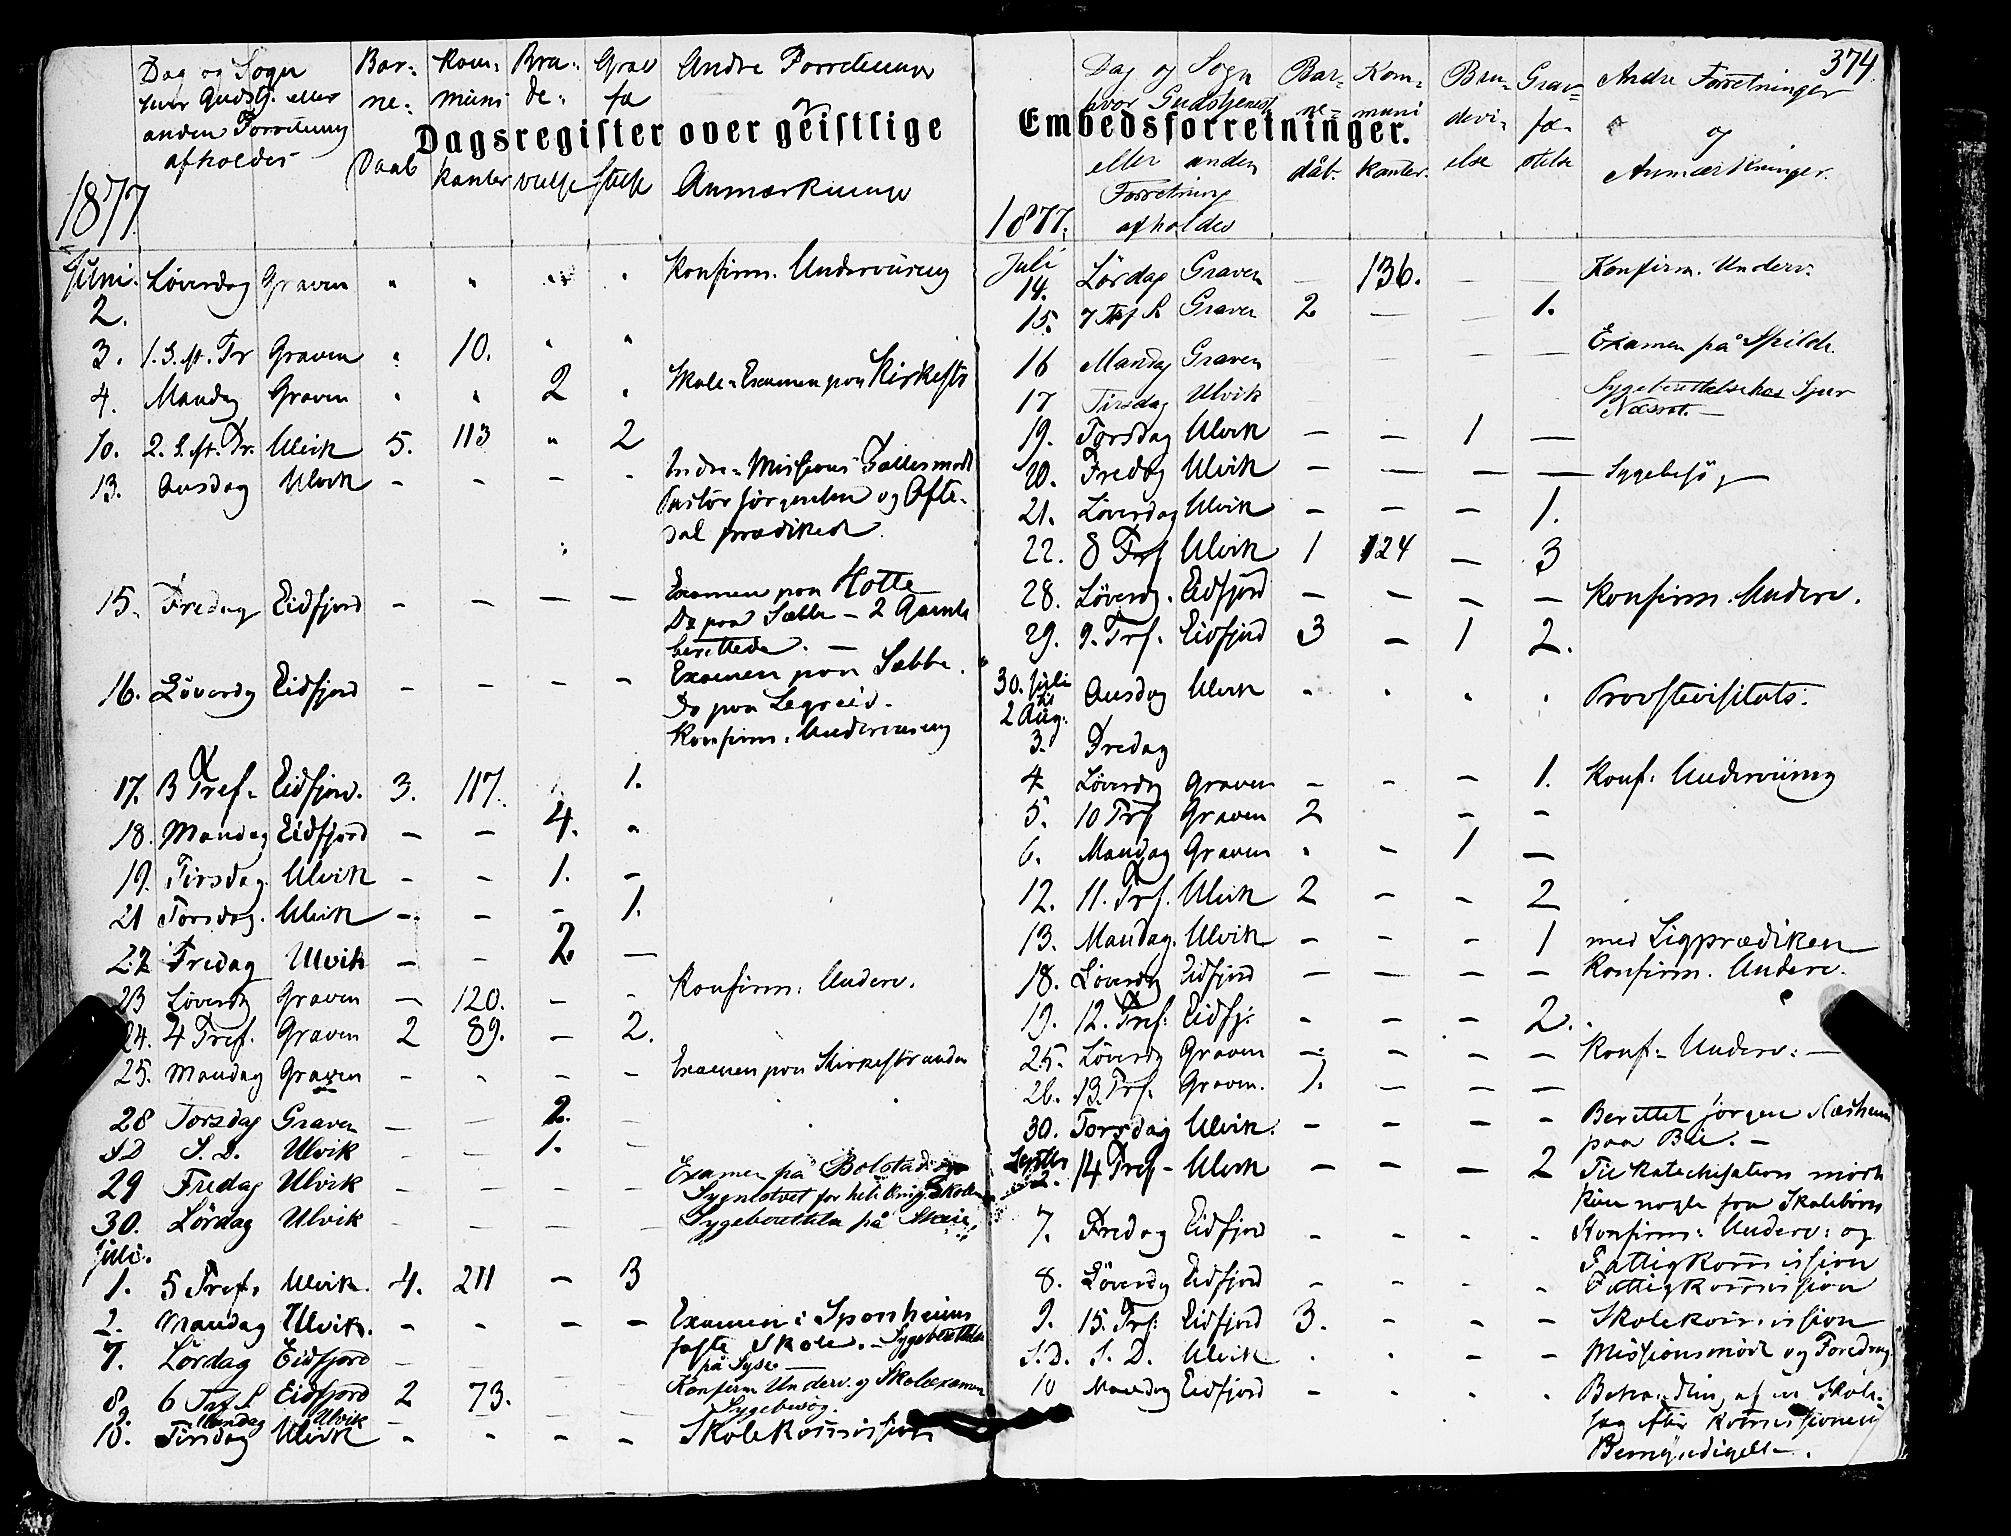 374.
Dagsregister over geistlige Embedsforretninger.
Dag og Sogn hvor Gudstj. eller anden Forretning afholdes
Bar- ne- Daab
Kom- muni kanter
Bru- de- vielse
Grav fæ stelse
Andre Forretninger og Anmærkninger
1877.
Juni. 2. Løverdag Graven " " " " Konfirm. Underviisning
3. 1. S. ft. Tr Graven " 10. " "
4. Mandag Graven " " 2 " Skole-Examen paa Kirkestr
10. 2. S. ft. Tr. Ulvik 5. 113 " 2
13. Onsdag Ulvik - - - - Indre-Missions Fællesmøde
Pastor Jørgensen og Ofte-
dal prædiked
15. Fredag Eidfjord - - - - Examen paa Hotle
Do paa Sæbbe - 2 Gamle
berettede. -
16. Løverdg Eidfjord - - - - Examen paa Sæbbe.
Do paa Legreid.
Konfirm. Underviisning
17. 3 Tref. Eidfjord. 3. 117. 1.
18. Mandag Eidfjord - - 4. "
19. Tirsdag. Ulvik - - 1. -
21 Torsdag. Ulvik - - - 1.
22 Fredag Ulvik - - 2. -
23 Løverdg Graven - 120. - - Konfirm. Underv.
24. 4 Tref. Graven 2 89. - 2.
25. Mandag Graven - - - - Examen paa Kirkestranden
28 Torsdag Graven - - 2.
S.D S.D. Ulvik - - 1. -
29 Fredag Ulvik - - - - Examen på Bolstad
30. Lørdag Ulvik - - - - Sygeberettelse på
Juli.
1. 5 Tref. Ulvik. 4. 211 - 3
2. Mandag Ulvik. - - - - Examen i Sponheims
faste Skole. - Sygeberettelse
7. Lørdag Eidfjord - - på Syse
Konfirm Underv. og Skoleexamen
8. 6 Trf. S. Eidfjord 2 73. Sygebesøg.
9. Mandag Ulvik
10. Tirsdag Ulvik - - - - Skolekommission
Dag og Sogn hvor Gudstjeneste eller anden Forretning afholdes
Bar- ne- dåb.
Kom- muni kanter.
Bru- devi- else
Grav- fæ- stelse
Andre Forretninger og Anmærkninger.
1877.
Juli 14. Lørdag Graven - 136. - - Konfirm. Underv.
15. 7 Trf S. Graven 2 - - 1.
16 Mandag Graven - - - Examen på Spilde
17 Tirsdag Ulvik Sygeberettelse hos Sjur
19. Torsdag Ulvik - - 1 -
20. Fredag Ulvik - - - - Sygebesøg
21. Løverdag Ulvik - - - 1.
22. 8 Trf Ulvik 1 124 - 3
28. Løverdg. Eidfjord - - - - Konfirm. Underv.
29. 9. Trf. Eidfjord 3 - 1 2.
30. Juli til 2 Aug. Onsdag Ulvik " " " " Provstevisitats.
3. Fredag
4. Løverdg Graven - - - 1. Konf. Underviisning
5. 10 Trf Graven 2 - -
6. Mandag Graven " - 1 -
12. 11. Trf. Ulvik 2 - - 2
13. Mandag. Ulvik - - - 1 med Ligprædiken
18. Løverdg Eidfjord - - - - Konfirm. Underv.
19. 12. Tref. Eidfj. - - - 2.
25. Løverdg Graven - - - - Konf. Underv. -
26. 13. Trf. Graven. 1. - - -
30. Torsdag Ulvik. - - - - Berettet Jørgen Næsheim
paa Bu. -
Septbr 2. 14 Tref - Ulvik - - - 2 Til Katechisation mødte
kun nogle faa Skolebørn
7. Fredag Eidfjord - - - - Konfirm. Underv. og
Fattigkommission
8. Løverdg Eidfjord - - - - Fattigkommission
9. 15. Trf. Eidfjord 3. - - - Skolekommission
S.D. S.D. Ulvik " " - - Missionsmøde og Foredrag
10 Mandag Eidfjord - - - - Behandling af en Skole-
sag efter Kommissionens
Bemyndigelse.